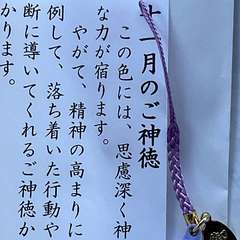 十一月のご神徳
この色には、思慮深く神
な力が宿ります。
やがて、精神の高まりに
例して、落ち着いた行動や
断に導いてくれるご神徳か
かります。